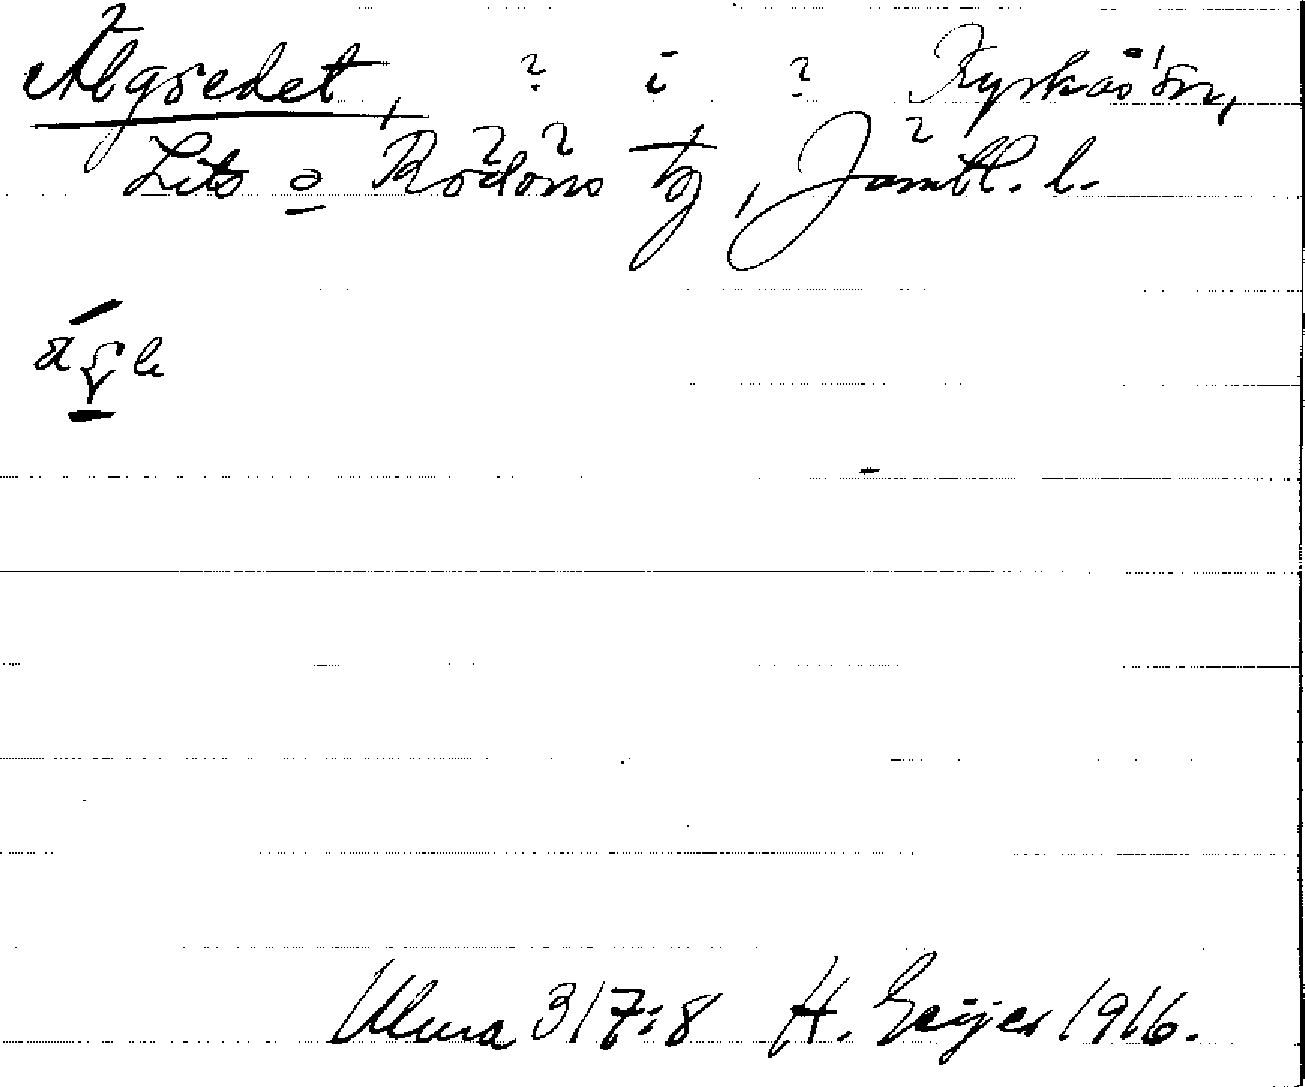 Åbgredet, ? i ? Kyrkås sn,
Lits o Rödöns tg, Jämtl. l.
Ulma 317:8 H. Geijer 1916.